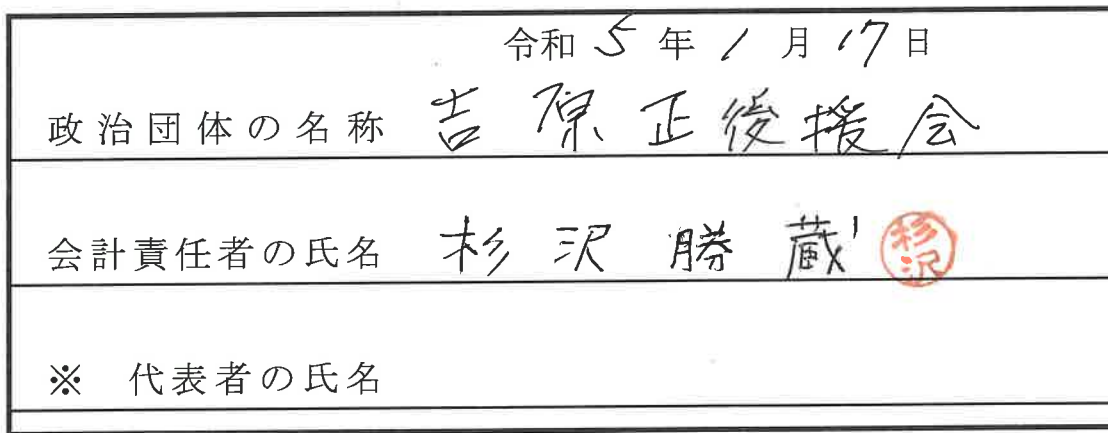 令和 5 年 1 月 17 日
政治団体の名称 吉原正後援会
会計責任者の氏名 杉沢勝蔵 杉沢
※ 代表者の氏名